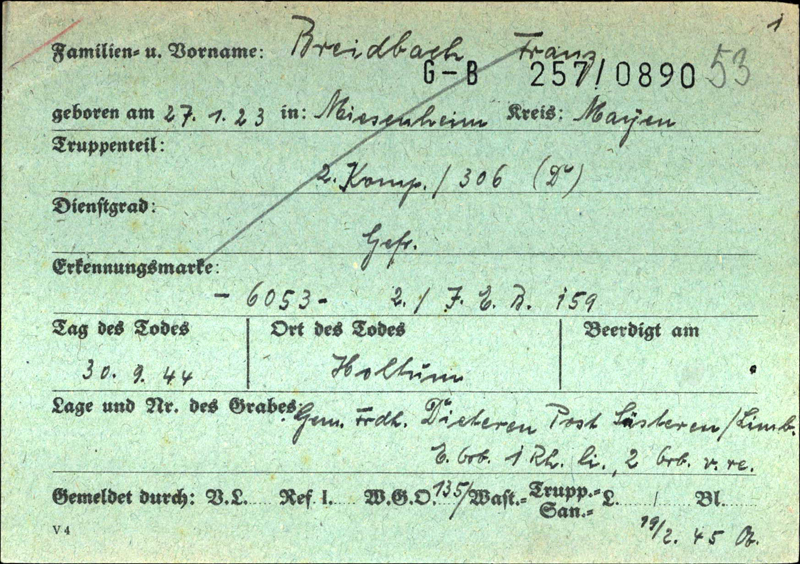 1
Familien- u. Vorname: Breidbach Franz
G-B 257/0890 53
geboren am 27.1.23 in: Miesenheim Kreis: Mayen
Truppenteil:
2. Komp. / 306 (Dr)
Dienstgrad:
Gefr.
Erkennungsmarke:
- 6053 - 2. / J. E. B. 159
Tag des Todes Ort des Todes Beerdigt am
30. 9. 44 Holtum
Lage und Nr. des Grabes: Gem. Frdh. Dieteren Post Süsteren / Limb.
E. Grb. 1 Rh. li., 2 Grb. v. re.
Gemeldet durch: V.L. Ref I. W.G.O. 135/ Wast.- Trupp.- San.- L. / Bl.
19/2. 45
V 4